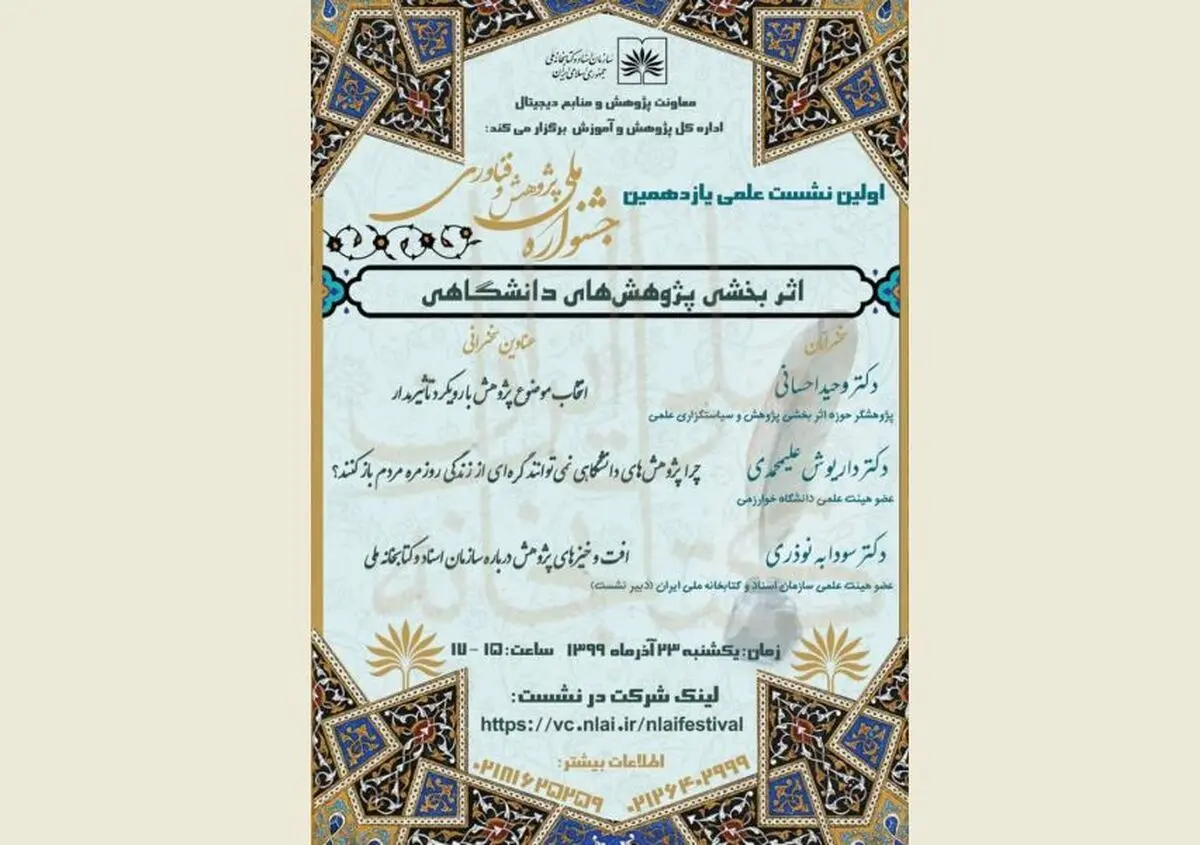 سازمان اسناد و کتابخانه ملی
جمهوری اسلامی ایران
معاونت پژوهش و منابع دیجیتال
اداره کل پژوهش و آموزش برگزار می کند:
اولین نشست علمی یازدهمین
جشنواره ملی پژوهش و فناوری
اثر بخشی پژوهش‌های دانشگاهی
سخنرانان
عناوین سخنرانی
دکتر وحید احسانی
انتخاب موضوع پژوهش با رویکرد تأثیرمدار
پژوهشگر حوزه اثر بخشی پژوهش و سیاستگزاری علمی
دکتر داریوش علیمحمدی
چرا پژوهش‌های دانشگاهی نمی‌توانند گره‌ای از زندگی روزمره مردم باز کنند؟
عضو هیئت علمی دانشگاه خوارزمی
دکتر سودابه نوذری
افت و خیزهای پژوهش درباره سازمان اسناد و کتابخانه ملی
عضو هیئت علمی سازمان اسناد و کتابخانه ملی ایران (دبیر نشست)
زمان: یکشنبه ۲۳ آذرماه ۱۳۹۹ ساعت: ۱۵ - ۱۷
لینک شرکت در نشست:
https://vc.nlai.ir/nlaifestival
اطلاعات بیشتر:
۰۲۱۸۱۶۲۵۲۵۹
۰۲۱۲۶۴۰۲۹۹۹
کتابخانه ملی ایران